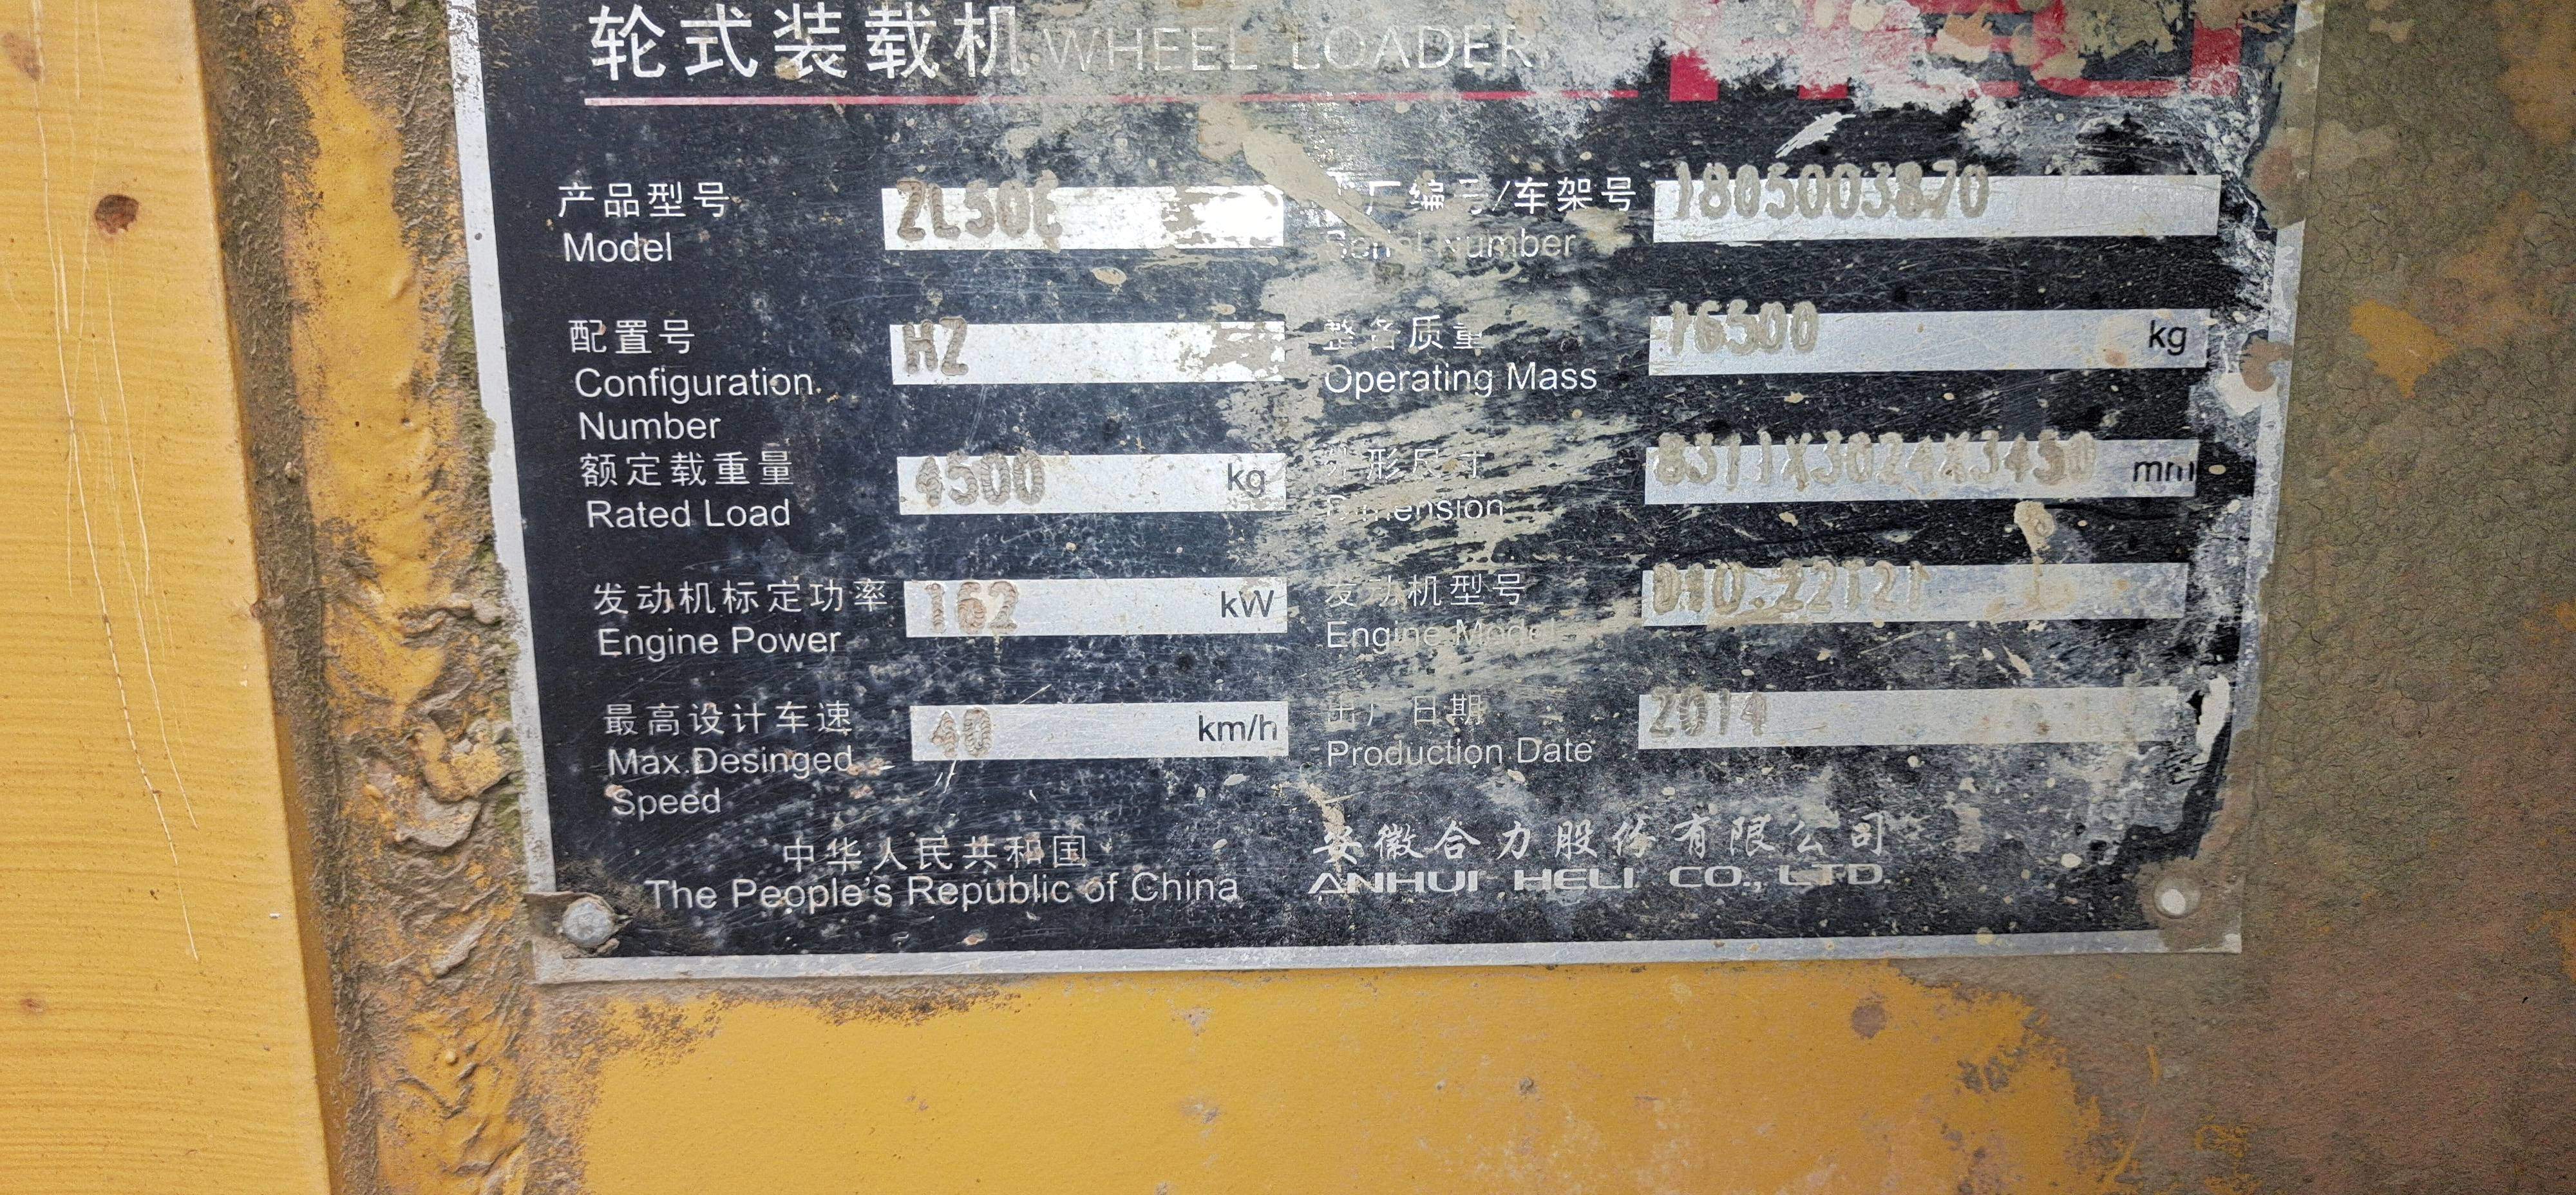 轮式装载机 WHEEL LOADER HELI
产品型号 ZL50E 出厂编号/车架号 1805003870
Model Serial Number
配置号 HZ 整备质量 16500 kg
Configuration Operating Mass
Number
额定载重量 4500 kg 外形尺寸 8311X3024X3450 mm
Rated Load Dimension
发动机标定功率 162 kW 发动机型号
Engine Power Engine Model
最高设计车速 40 km/h 出厂日期 2014
Max.Desinged Production Date
Speed
中华人民共和国 安徽合力股份有限公司
The People's Republic of China ANHUI HELI CO., LTD.